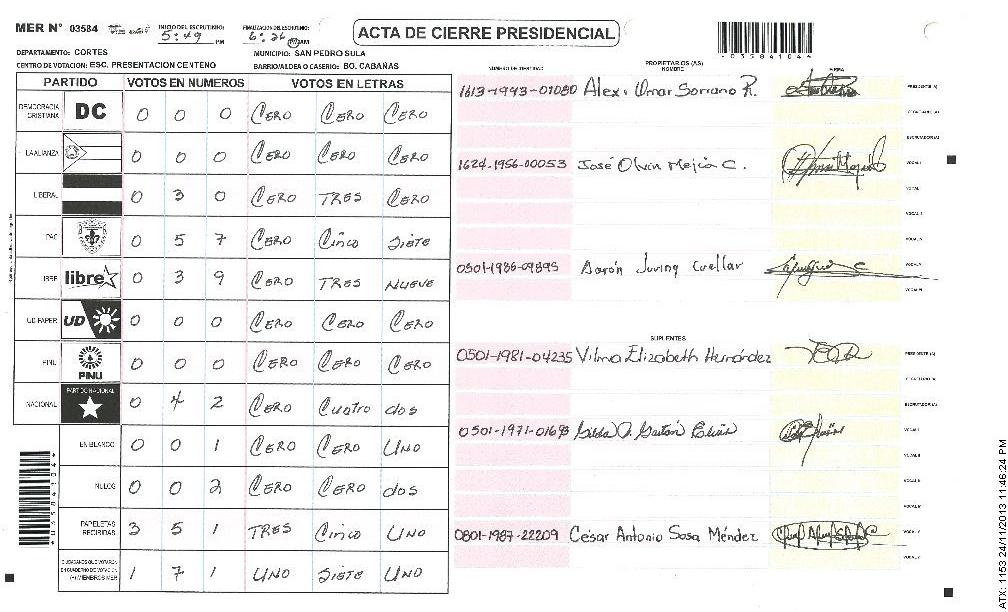 MER N° 03584 INICIO DEL ESCRUTINIO: 5:49 PM FINALIZACION DEL ESCRUTINIO: 6:26 PM
ACTA DE CIERRE PRESIDENCIAL
DEPARTAMENTO: CORTES MUNICIPIO: SAN PEDRO SULA
CENTRO DE VOTACION: ESC. PRESENTACION CENTENO BARRIO/ALDEA O CASERIO: BO. CABAÑAS
PARTIDO VOTOS EN NUMEROS VOTOS EN LETRAS
DEMOCRACIA CRISTIANA DC 0 0 0 CERO CERO CERO
LA ALIANZA 0 0 0 CERO CERO CERO
LIBERAL 0 3 0 CERO TRES CERO
PAC 0 5 7 CERO Cinco Siete
LIBRE libre 0 3 9 CERO TRES NUEVE
UD-FAPER UD 0 0 0 CERO CERO CERO
PINU PINU 0 0 0 CERO CERO CERO
NACIONAL PARTIDO NACIONAL 0 4 2 CERO Cuatro dos
EN BLANCO 0 0 1 CERO CERO UNO
NULOS 0 0 2 CERO CERO dos
PAPELETAS RECIBIDAS 3 5 1 TRES Cinco UNO
CIUDADANOS QUE VOTARON EN CUADERNO DE VOTACION (+) MIEMBROS MER 1 7 1 UNO SIETE UNO
NÚMERO DE IDENTIDAD PROPIETARIOS (AS) NOMBRE FIRMA
1613-1993-01080 Alexi Omar Soriano R. PRESIDENTE (A)
SECRETARIO (A)
ESCRUTADOR (A)
1624-1956-00053 José Olvin Mejia C. VOCAL I
0501-1986-09895 Darón Juving Cuellar VOCAL V
SUPLENTES
0501-1981-04235 Vilma Elizabeth Hernández PRESIDENTE (A)
SECRETARIO (A)
ESCRUTADOR (A)
0501-1971-01693 Gilda A. Gaitán VOCAL I
0801-1987-22209 César Antonio Sosa Méndez
ATX: 1153 24/11/2013 11:46:24 PM